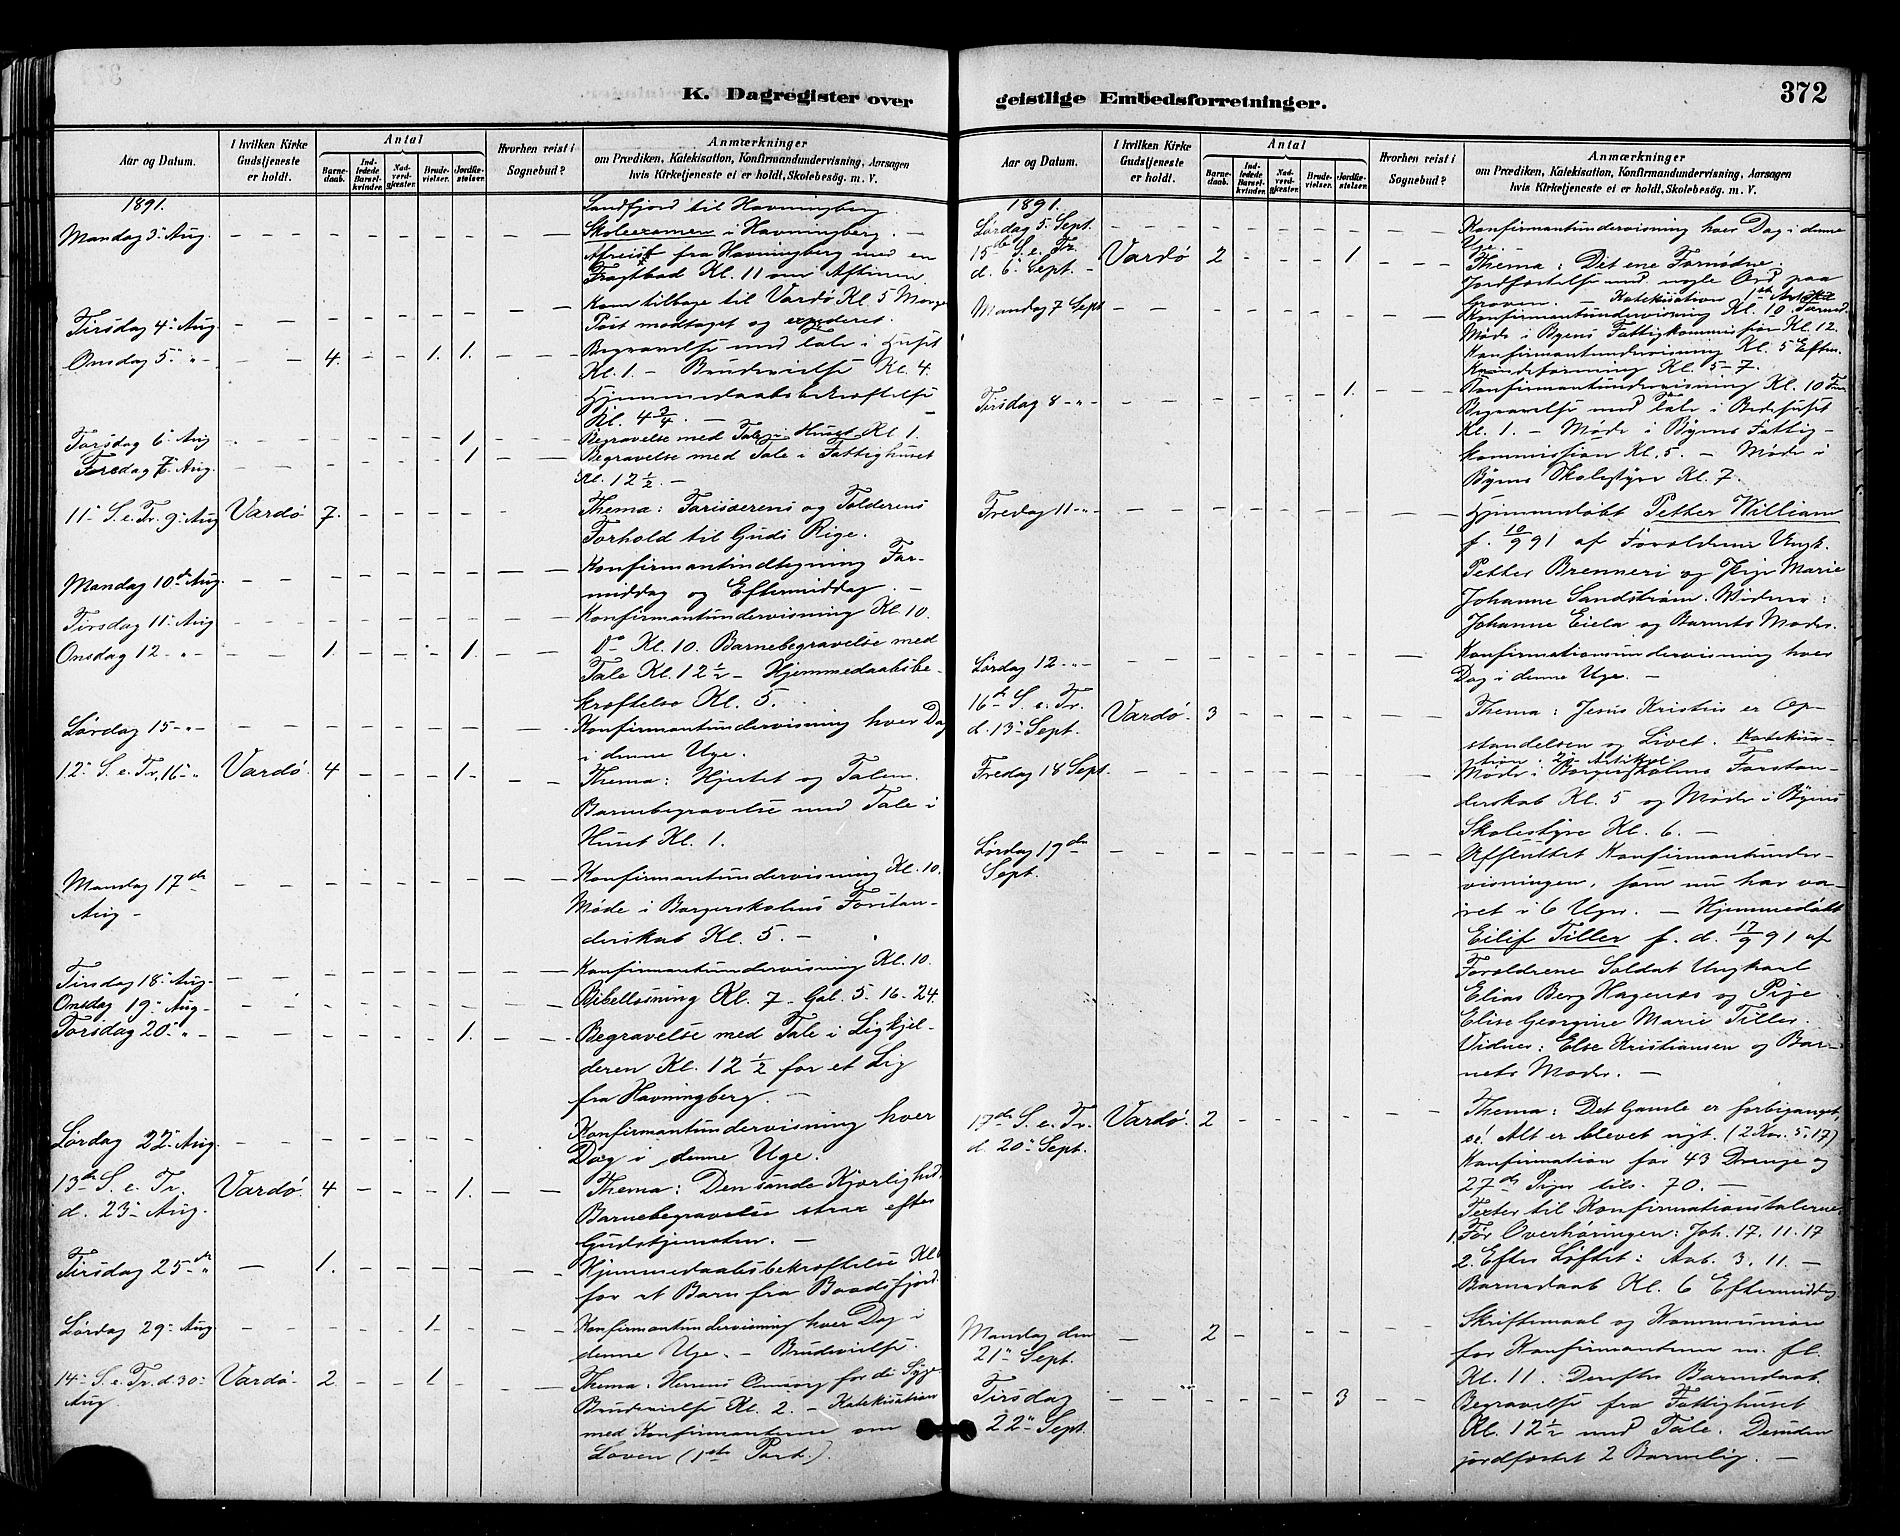 K. Dagregister over
geistlige Embedsforretninger.
372
Aar og Datum.
I hvilken Kirke Gudstjeneste er holdt.
Antal
Barnedaab.
Indledede Barselkvinder.
Nadverdgjester.
Brudevielser.
Jordfæstelser.
Hvorhen reist i Sognebud?
Anmærkninger
om Prædiken, Katekisation, Konfirmandundervisning, Aarsagen
hvis Kirketjeneste ei er holdt, Skolebesøg. m. V.
1891.
Sandfjord til Havningberg.
Mandag 3 Aug. Skoleexamen i Havningberg. –
Afreist fra Havningberg med en
Fragtbaad Kl. 11 om Aftenen
Kom tilbage til Vardø Kl. 5 Morgen
Tirsdag 4 Aug. Post modtaget og expederet.
Onsdag 5 " 4. 1. 1. Begravelse med Tale i Huset
Kl. 1. – Brudevielse Kl. 4.
Hjemmedaabsbekræftelse
Kl. 4 3/4. –
Torsdag 6 Aug 1 Begravelse med Tale i Huset Kl 1.
Fredag 7 Aug. 1 Begravelse med Tale i Fattighuset
Kl. 12 1/2. –
11 S. e. Tr. 9 Aug Vardø 7. Thema: Farisæerens og Tolderens
Forhold til Guds Rige.
Mandag 10de Aug. Konfirmantindtegning For-
middag og Eftermiddag. –
Tirsdag 11 Aug Konfirmantundervisning Kl. 10.
Onsdag 12 - " - 1. 1. Do Kl. 10. Barnebegravelse med
Tale Kl. 12 1/2 – Hjemmedaabsbe-
kræftelse Kl. 5.
Lørdag 15 - " - Konfirmantundervisning hver Dag
i denne Uge.
12 S. e. Tr. 16 - " Vardø. 4 1. Thema: Hjertet og Talen.
Barnebegravelse med Tale i
Huset Kl. 1.
Mandag 17de Konfirmantundervisning Kl. 10.
Aug – Møde i Borgerskolens Forstan-
derskab Kl. 5. –
Tirsdag 18 Aug. Konfirmantundervisning Kl. 10.
Onsdag 19 Aug. Bibellæsning Kl. 7 – Gal. 5. 16-24.
Torsdag 20 " 1. Begravelse med Tale i Ligkjel-
deren Kl. 12 1/2 for et Lig
fra Havningberg. –
Lørdag 22 Aug. Konfirmantundervisning hver
Dag i denne Uge.
13de S. e. Tr. Vardø. 4 1. Thema: Den sande Kjærlighed.
d. 23 Aug. Barnebegravelse strax efter
Gudstjenesten. –
Tirsdag 25de " 1. Hjemmedaabsbekræftelse Kl.
for et Barn fra Baadsfjord.
Lørdag 29 Aug 1. Konfirmantundervisning hver Dag i
denne Uge. – Brudevielse.
14 S. e. Tr. d. 30 Vardø. 2 1 Thema: Herrens Omsorg for de Syge
Aug. Brudevielse Kl. 2. – Katekisation
med Konfirmanterne om
Loven (1ste Part.)
Aar og Datum.
I hvilken Kirke Gudstjeneste er holdt.
Antal
Barnedaab.
Indledede Barselkvinder.
Nadverdgjester.
Brudevielser.
Jordfæstelser.
Hvorhen reist i Sognebud?
Anmærkninger
om Prædiken, Katekisation, Konfirmandundervisning, Aarsagen
hvis Kirketjeneste ei er holdt, Skolebesøg. m. V.
1891.
Lørdag 5 Sept. Konfirmantundervisning hver Dag i denne
Uge. –
15de S. e. Tr. Vardø 2 1 Thema: Det ene Fornødne.
d. 6 Sept. Jordfæstelse med nogle Ord paa
Graven. – Katekisation 1ste Artikel
Mandag 7 Sept Konfirmantundervisning Kl. 10 Formd.
Møde i Byens Fattigkommission Kl. 12.
Konfirmantundervisning Kl. 5 Efterm.
Kl. 5-7.
Tirsdag 8 - " - 1. Konfirmantundervisning Kl. 10 Fm.
Begravelse med Tale i Bedehuset
Kl. 1. – Møde i Byens Fattig-
kommission Kl. 5. – Møde i
Byens Skolestyre Kl. 7.
Fredag 11 - " - Hjemmedøbt Petter William
f. 10/9 91 af Forældrene Ungk.
Petter Brenneri og Pige Marie
Johanne Sandstrøm. Vidner:
Johanne Eiela og Barnets Moder.
Lørdag 12 - " - Konfirmationsundervisning hver
Dag i denne Uge. –
16de S. e. Tr. Vardø. 3 Thema: Jesus Kristus er Op-
d. 13 Sept. standelsen og Livet. Katekisa-
tion: 2den Artikel.
Fredag 18 Sept. Møde i Borgerskolens Forstan-
derskab Kl. 5 og Møde i Byens
Skolestyre Kl. 6. –
Lørdag 19de Afsluttet Konfirmantunder-
Sept. visningen, som nu har va-
ret i 6 Uger. – Hjemmedøbt
Eilif Tiller f. d. 17/9 91 af
Forældrene Soldat Ungkarl
Elias Berg Hagenæs og Pige
Elise Georgine Marie Tiller.
Vidner: Else Kristiansen og Bar-
nets Moder. –
17de S. e. Tr. Vardø. 2 Thema: Det Gamle er forbiganget,
d. 20 Sept. se! Alt er blevet nyt. (2 Kor. 5. 17)
Konfirmation for 43 Drenge og
27 Piger tils. 70. –
Texter til Konfirmationstalerne:
1. Før Overhøringen: Joh. 17. 11. 17
2. Efter Løftet: Aab. 3. 11. –
Barnedaab Kl. 6 Eftermiddag.
Mandag den – 2 Skriftemaal og Kommunion
21 Sept. for Konfirmanterne m. fl.
Kl. 11. Derefter Barnedaab.
Tirsdag 3 Begravelse fra Fattighuset
22 Sept. Kl. 12 1/2 med Tale. Desuden
jordfæstet 2 Barnelig. –